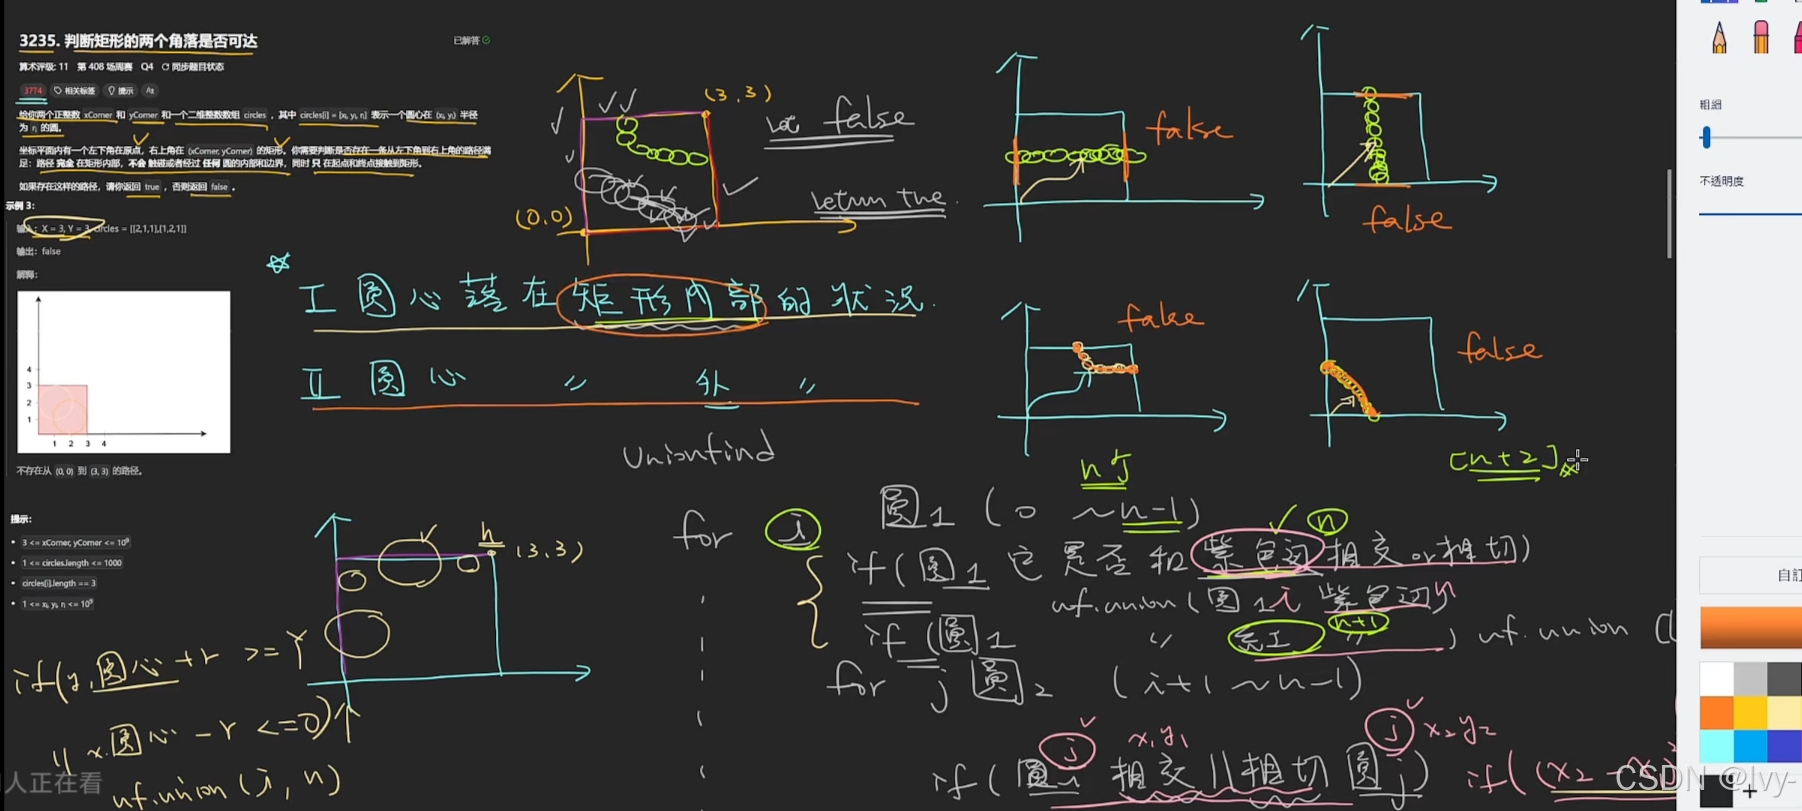 3235. 判断矩形的两个角落是否可达
已解答
算术评级: 11 第 408 场周赛 Q4 同步题目状态
3774 相关标签 提示 Az
给你两个正整数 xCorner 和 yCorner 和一个二维整数数组 circles ，其中 circles[i] = [xᵢ, yᵢ, rᵢ] 表示一个圆心在 (xᵢ, yᵢ) 半径
为 rᵢ 的圆。
坐标平面内有一个左下角在原点，右上角在 (xCorner, yCorner) 的矩形。你需要判断是否存在一条从左下角到右上角的路径满
足：路径 完全 在矩形内部，不会 触碰或者经过 任何 圆的内部和边界，同时 只 在起点和终点接触到矩形。
如果存在这样的路径，请你返回 true ，否则返回 false 。
示例 3：
输入：X = 3, Y = 3, circles = [[2,1,1],[1,2,1]]
输出：false
解释：
4
3
2
1
1 2 3 4
不存在从 (0, 0) 到 (3, 3) 的路径。
提示：
3 <= xCorner, yCorner <= 10⁹
1 <= circles.length <= 1000
circles[i].length == 3
1 <= xᵢ, yᵢ, rᵢ <= 10⁹
(3,3)
(0,0)
false
return true.
false
false
false
false
I 圆心落在矩形内部的状况.
II 圆心 〃 外 〃
Unionfind
[n+2]
n
(3,3)
for i 圆1 (0 ~ n-1)
n
if(圆1 它是否和紫色边相交or相切)
uf.union(圆1 i 紫色边n
n+1
if(圆1 〃 红工 〃 ) uf.union (
for j 圆2 (i+1 ~ n-1)
x₁y₁
j x₂y₂
if(圆i 相交||相切 圆j) if((x₂ -
if(y.圆心+r >= Y
|| x.圆心 - r <=0)
uf.union(i, n)
粗細
不透明度
自訂
人正在看
CSDN @Ivy-